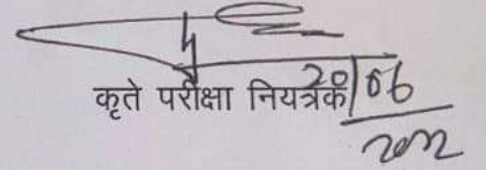 कृते परीक्षा नियत्रंक
20/06
2022